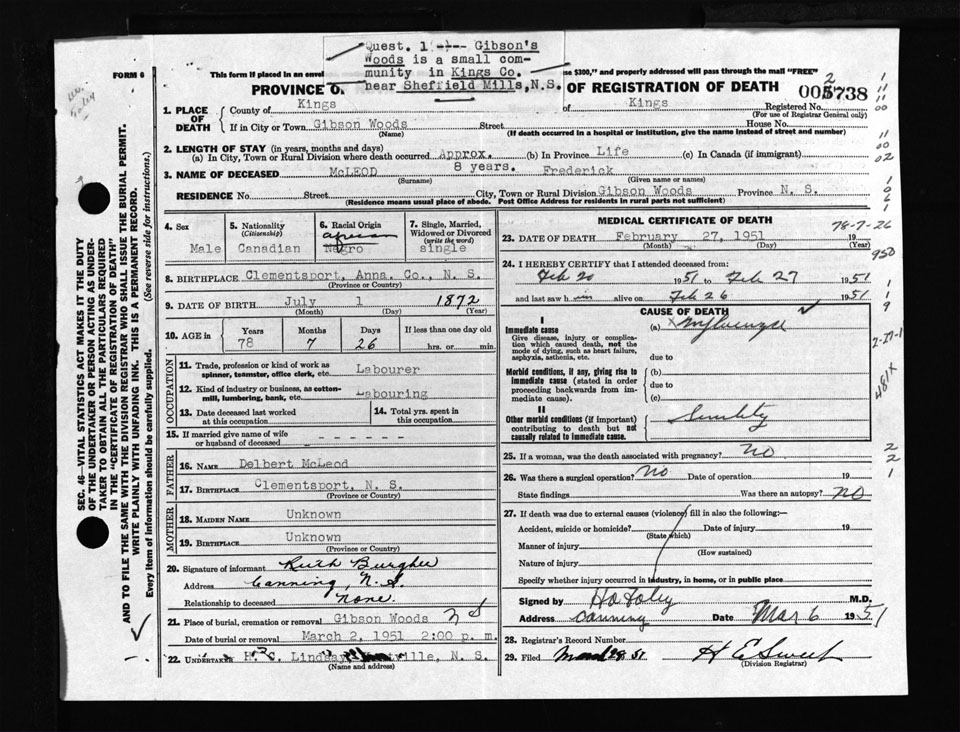 Quest. 1 ---- Gibson's
Woods is a small com-
munity in Kings Co.
near Sheffield Mills, N.S.
FORM 6
This form if placed in an envel
se $300," and properly addressed will pass through the mail "FREE"
PROVINCE O
OF REGISTRATION OF DEATH
005738
2
1. PLACE OF DEATH
County of Kings
of Kings
Registered No.
(For use of Registrar General only)
If in City or Town Gibson Woods Street House No.
(Name)
(If death occurred in a hospital or institution, give the name instead of street and number)
2. LENGTH OF STAY (in years, months and days)
(a) In City, Town or Rural Division where death occurred Approx. 8 years. (b) In Province Life (c) In Canada (if immigrant)
3. NAME OF DECEASED McLEOD Frederick
(Surname) (Given name or names)
RESIDENCE No. Street City, Town or Rural Division Gibson Woods Province N. S.
(Residence means usual place of abode. Post Office Address for residents in rural parts not sufficient)
4. Sex
Male
5. Nationality
(Citizenship)
Canadian
6. Racial Origin
African
Negro
7. Single, Married, Widowed or Divorced
(write the word)
single
8. BIRTHPLACE Clementsport, Anna. Co., N. S.
(Province or Country)
9. DATE OF BIRTH July 1 1872
(Month) (Day) (Year)
10. AGE in
Years Months Days If less than one day old
78 7 26 hrs. or min.
OCCUPATION
11. Trade, profession or kind of work as spinner, teamster, office clerk, etc. Labourer
12. Kind of industry or business, as cotton-mill, lumbering, bank, etc. Labouring
13. Date deceased last worked at this occupation
14. Total yrs. spent in this occupation
15. If married give name of wife or husband of deceased - - - - - -
FATHER
16. NAME Delbert McLeod
17. BIRTHPLACE Clementsport, N. S.
(Province or Country)
MOTHER
18. MAIDEN NAME Unknown
19. BIRTHPLACE Unknown
(Province or Country)
20. Signature of informant Ruth Burgher
Address Canning, N.S.
Relationship to deceased None.
21. Place of burial, cremation or removal Gibson Woods N S
Date of burial or removal March 2, 1951 2:00 p. m.
22. UNDERTAKER H. C. Lindsay, N. S.
(Name and address)
MEDICAL CERTIFICATE OF DEATH
78-7-26
23. DATE OF DEATH February 27, 1951 19
(Month) (Day) (Year)
24. I HEREBY CERTIFY that I attended deceased from:
Feb 20 1951 to Feb 27 1951
and last saw h im alive on Feb 26 1951
CAUSE OF DEATH
I
Immediate cause
Give disease, injury or complication which caused death, not the mode of dying, such as heart failure, asphyxia, asthenia, etc.
(a) Influenza
due to
Morbid conditions, if any, giving rise to immediate cause (stated in order proceeding backwards from immediate cause).
(b)
due to
(c)
II
Other morbid conditions (if important) contributing to death but not causally related to immediate cause.
Senility
25. If a woman, was the death associated with pregnancy? no
26. Was there a surgical operation? no Date of operation 19
State findings Was there an autopsy? no
27. If death was due to external causes (violence) fill in also the following:—
Accident, suicide or homicide? Date of injury 19
(State which)
Manner of injury
(How sustained)
Nature of injury
Specify whether injury occurred in industry, in home, or in public place
Signed by M.D.
Address Canning Date Mar 6 1951
28. Registrar's Record Number
29. Filed 51 H E Sweet
(Division Registrar)
SEC. 46—VITAL STATISTICS ACT MAKES IT THE DUTY
OF THE UNDERTAKER OR PERSON ACTING AS UNDER-
TAKER TO OBTAIN ALL THE PARTICULARS REQUIRED
IN THE "CERTIFICATE OF REGISTRATION OF DEATH"
AND TO FILE THE SAME WITH THE DIVISION REGISTRAR WHO SHALL ISSUE THE BURIAL PERMIT.
WRITE PLAINLY WITH UNFADING INK. THIS IS A PERMANENT RECORD.
Every item of information should be carefully supplied. (See reverse side for instructions.)
950
2-27-1
481X